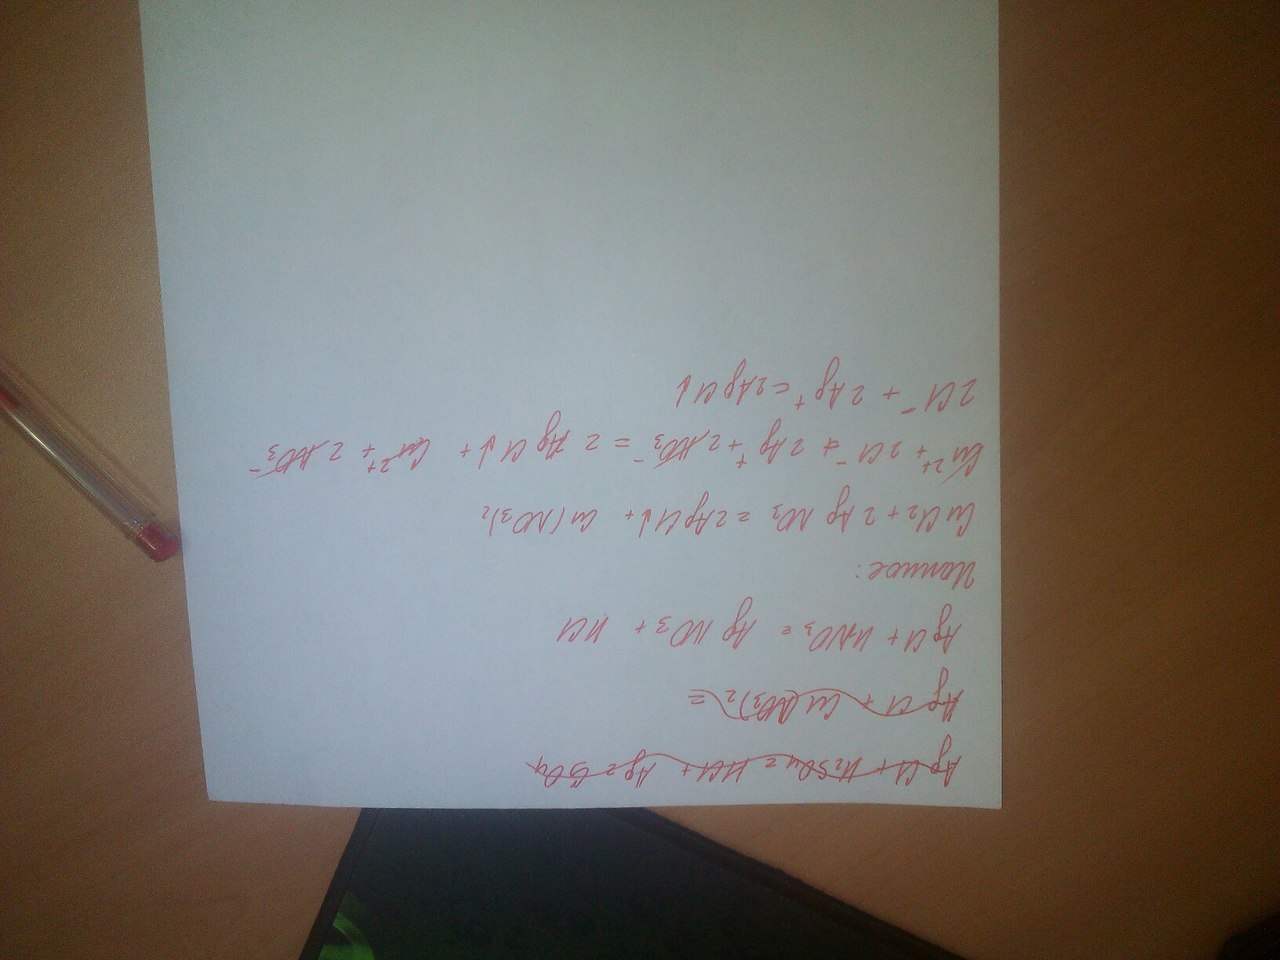 AgCl + H₂SO₄ = HCl + Ag₂SO₄
AgCl + Cu(NO₃)₂ =
AgCl + HNO₃ = AgNO₃ + HCl
Ионное:
CuCl₂ + 2AgNO₃ = 2AgCl↓ + Cu(NO₃)₂
Cu²⁺ + 2Cl⁻ + 2Ag⁺ + 2NO₃⁻ = 2AgCl↓ + Cu²⁺ + 2NO₃⁻
2Cl⁻ + 2Ag⁺ = 2AgCl↓